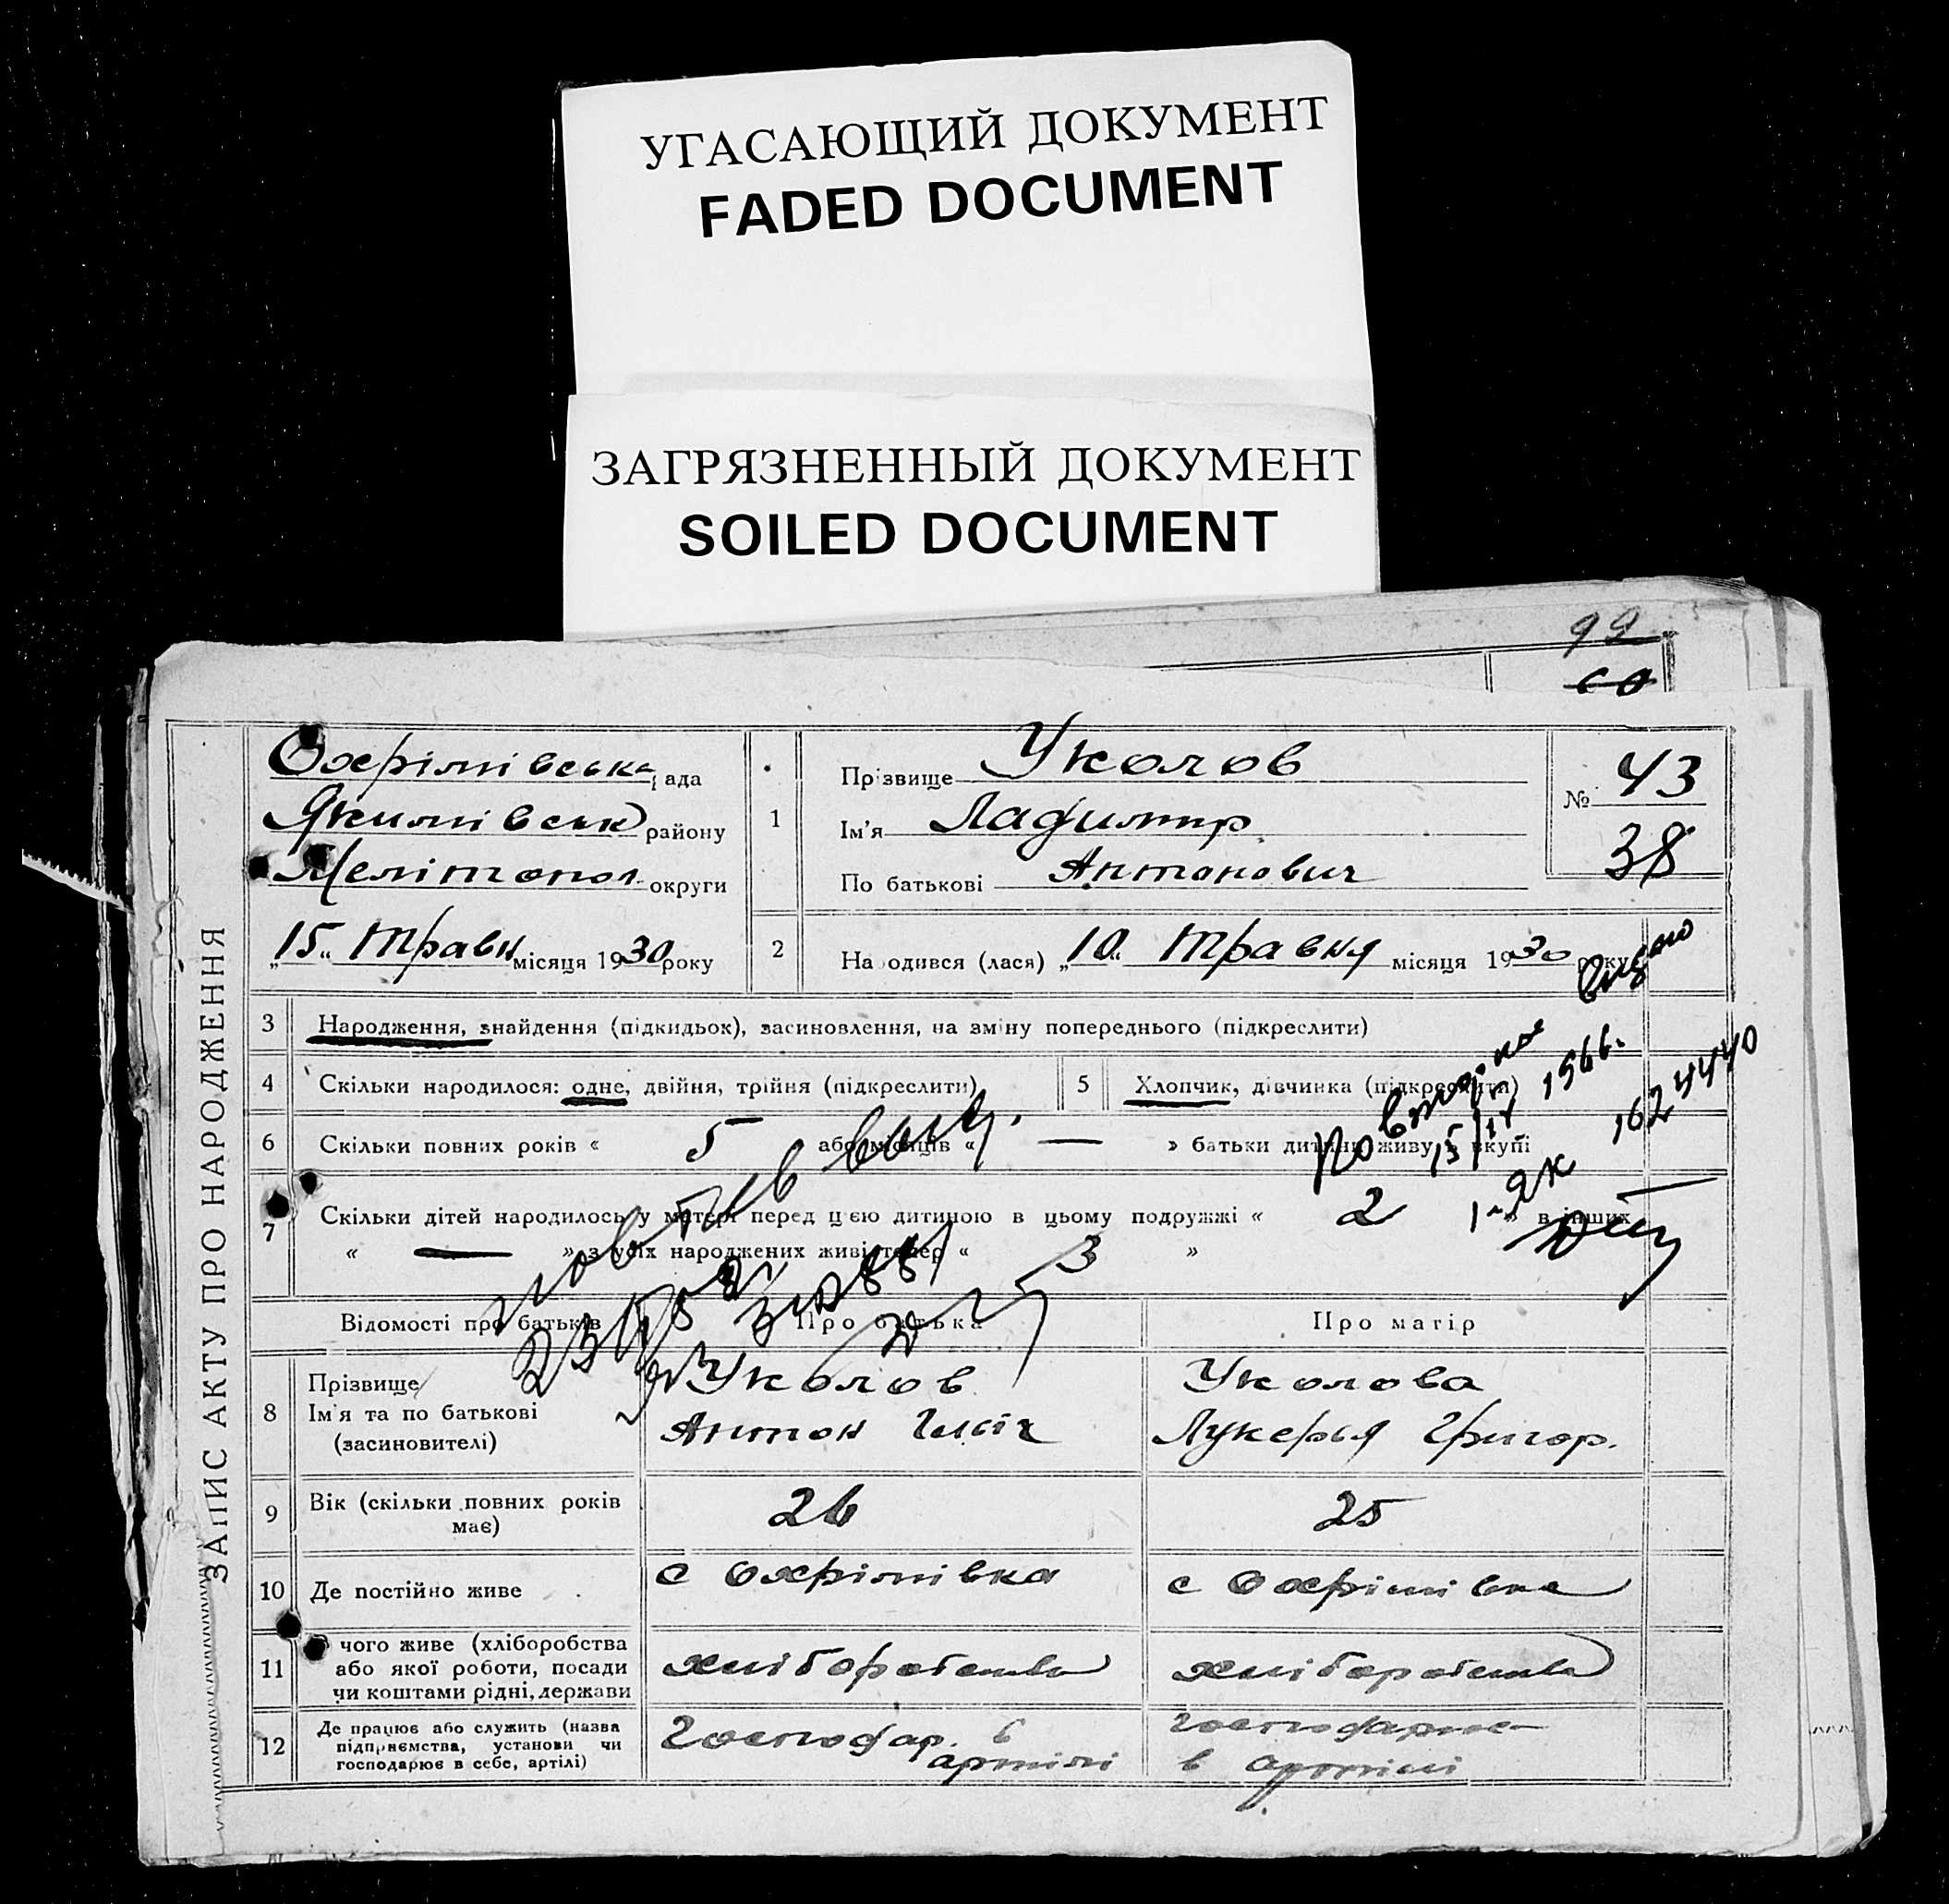 УГАСАЮЩИЙ ДОКУМЕНТ
FADED DOCUMENT
ЗАГРЯЗНЕННЫЙ ДОКУМЕНТ
SOILED DOCUMENT
99
60
ЗАПИС АКТУ ПРО НАРОДЖЕННЯ
Охрімівська рада
Якимівськ району
Мелітопол округи
„15“ Травн місяця 1930 року
1 Прізвище Уколов
Ім'я Ладимир
По батькові Антонович
№ 43
38
2 Народився (лася) „10“ Травня місяця 1930 року
3 Народження, знайдення (підкидьох), засиновлення, на зміну попереднього (підкреслити)
4 Скільки народилося: одне, двійня, трійня (підкреслити)
5 Хлопчик, дівчинка (підкреслити)
6 Скільки повних років « 5 або місяців « — » батьки дитини живуть вкупі
7 Скільки дітей народилось у матері перед цією дитиною в цьому подружжі « 2 » в інших
« — » з усіх народжених живі тепер « 3 »
Повторное видано
15/IV 1966.
1-ЯК
1624440
Відомості про батьків Про батька Про матір
8 Прізвище
Ім'я та по батькові
(засиновителі)
Уколов
Антон Ілліч
Уколова
Лукерья Григор.
9 Вік (скільки повних років
має)
26
25
10 Де постійно живе
с Охрімівка
с Охрімівка
11 чого живе (хліборобства
або якої роботи, посади
чи коштами рідні, держави
хліборобства
хліборобства
12 Де працює або служить (назва
підприємства, установи чи
господарює в себе, артілі)
Господар. в
артілі
господарює
в артілі